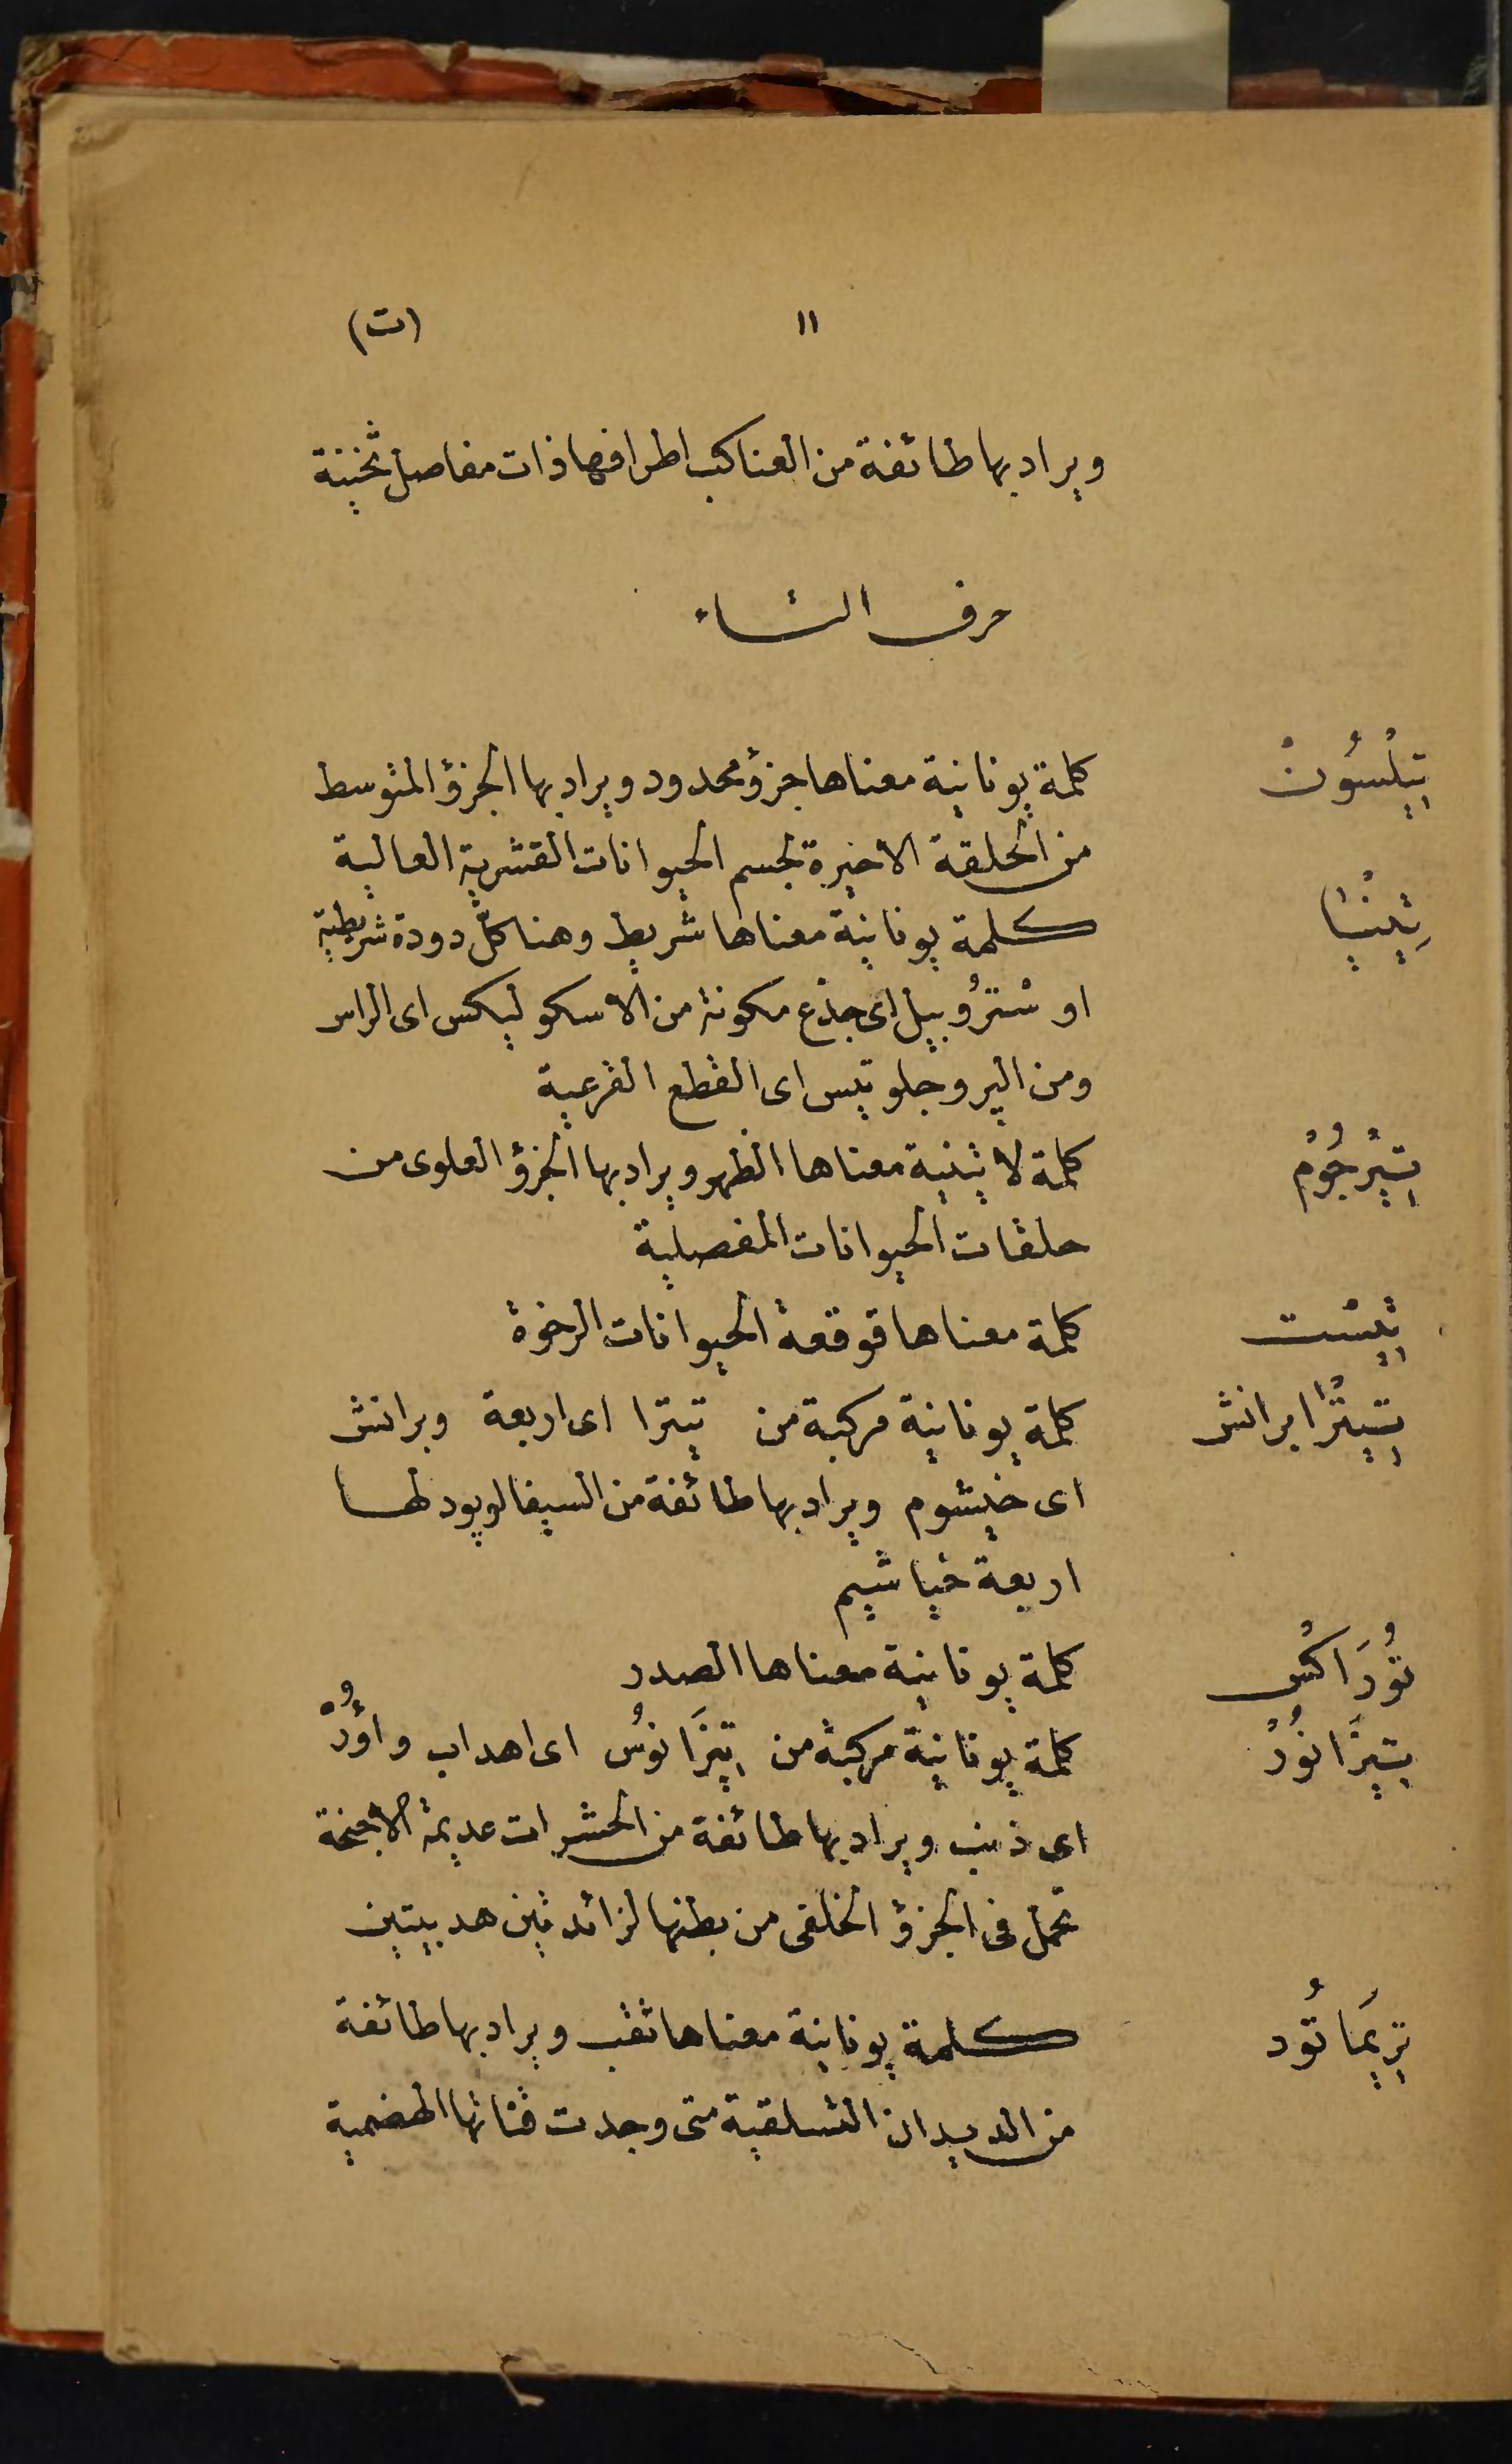 (ت) ١١
ويراد بها طائفة من العناكب اطرافها ذات مفاصل ثخينة
حرف التاء
تِيلْسُونْ كلمة يونانية معناها جزؤ محدود ويراد بها الجزؤ المتوسط
من الحلقة الاخيرة لجسم الحيوانات القشرية العالية
تِينْيَا كلمة يونانية معناها شريط وهنا كل دودة شريطية
او سْترُوبيل اى جذع مكونة من الاسكوليكس اى الراس
ومن البروجلوتيس اى القطع القرعية
تِيرْجُومْ كلمة لاتينية معناها الظهر ويراد بها الجزؤ العلوى من
حلقات الحيوانات المفصلية
تِيسْت كلمة معناها قوقعة الحيوانات الرخوة
تِيتْرَابرانش كلمة يونانية مركبة من تيترا اى اربعة وبرانش
اى خيشوم ويراد بها طائفة من السيفالوپود لها
اربعة خياشيم
تُورَاكْس كلمة يونانية معناها الصدر
تِيزَانُورْ كلمة يونانية مركبة من تِيزَانوُس اى اهداب واوُرْه
اى ذنب ويراد بها طائفة من الحشرات عديمة الاجنحة
تحمل فى الجزؤ الخلفى من بطنها لزائدتين هدبيتين
تِريمَاتُود كلمة يونانية معناها ثقب ويراد بها طائفة
من الديدان التسلقية متى وجدت قناتها الهضمية